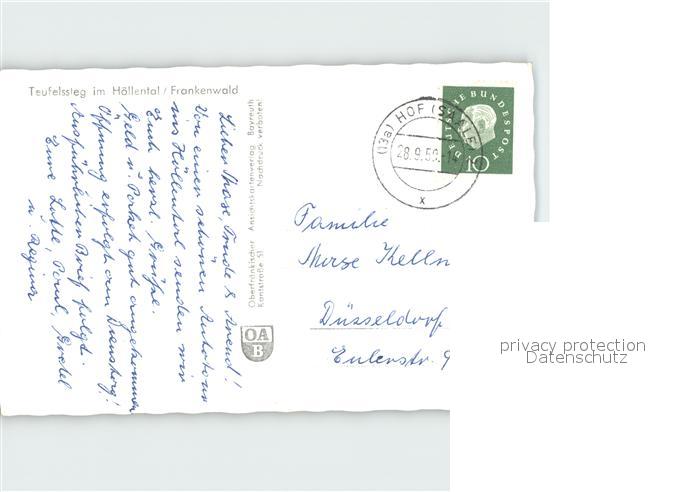 Teufelssteg im Höllental / Frankenwald
Liebe Trude &
Von einer schönen Autotour
ins Höllental senden wir
Euch herzl. Grüße.
Geld u. Paket gut angekommen
Öffnung erfolgt am Dienstag!
Ausführlicher Brief folgt.
Eure Lotte, Paul, Gretel
u. Regina
Oberfränkischer Ansichtskartenverlag Bayreuth
Kantstraße 51 Nachdruck verboten!
OA
B
(13a) HOF (SAALE)
28.9.59.-19
x
DEUTSCHE BUNDESPOST
10
Familie
Kelln
Düsseldorf
Eulerstr. 9
privacy protection
Datenschutz